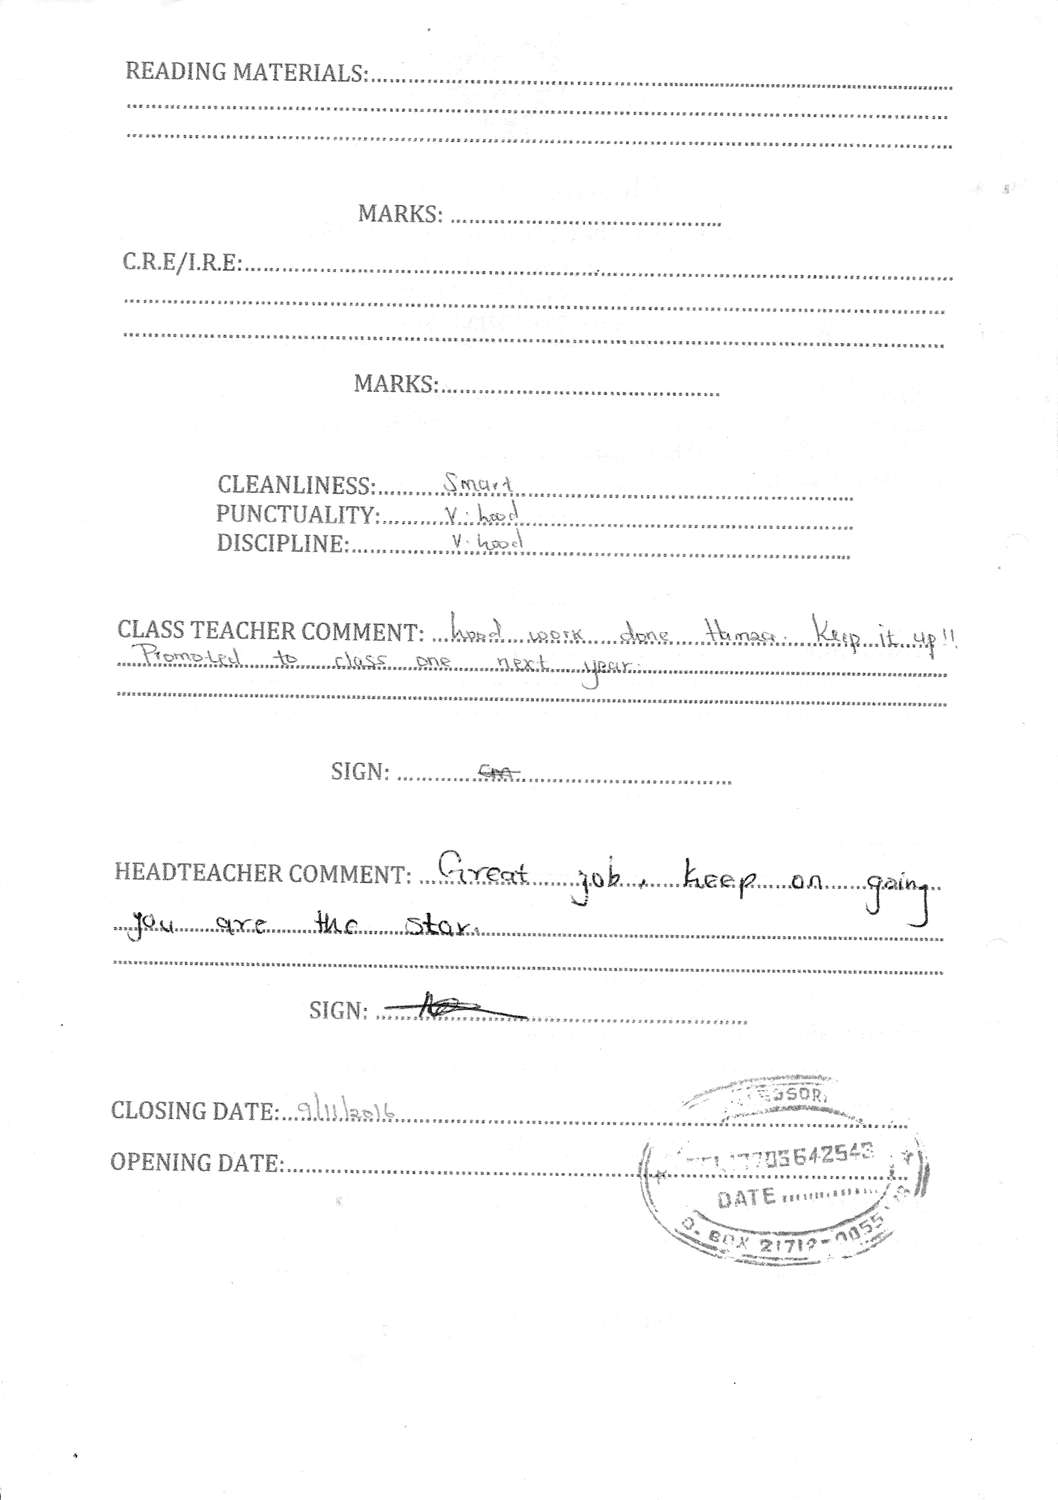 READING MATERIALS:
MARKS:
C.R.E/I.R.E:
MARKS:
CLEANLINESS: Smart
PUNCTUALITY: V. Good
DISCIPLINE: V. Good
CLASS TEACHER COMMENT: Good work done Hamza. Keep it up!!
Promoted to class one next year.
SIGN:
HEADTEACHER COMMENT: Great job, keep on going
you are the star.
SIGN:
CLOSING DATE: 9/11/2016
OPENING DATE:
DATE
BOX 21712-0055